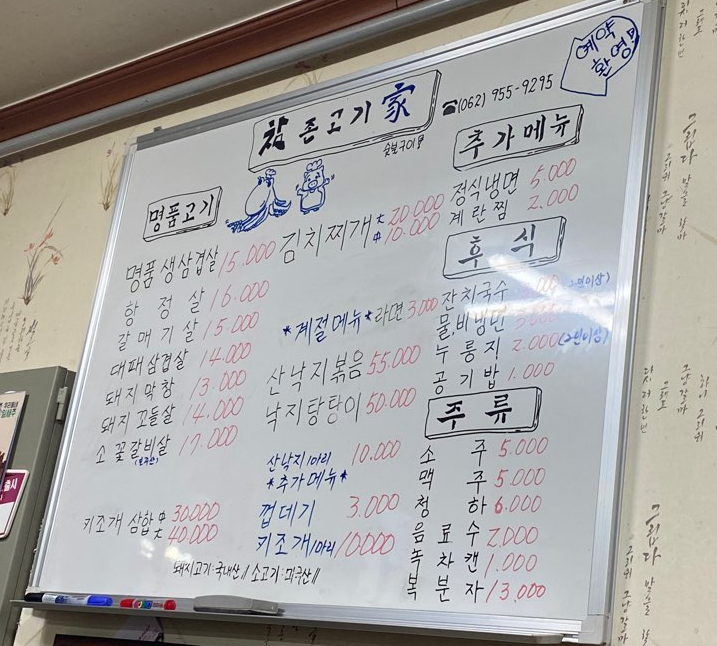 예약
환영
참 존고기 家
숯불구이
☎(062) 955-9295
명품고기
명품 생삼겹살 15.000
항정살 16.000
갈매기살 15.000
대패삼겹살 14.000
돼지막창 13.000
돼지 꼬들살 14.000
소 꽃갈비살 17.000
키조개 삼합 中 30.000
大 40.000
김치찌개 大 20.000
中 10.000
*계절메뉴* 라면 3.000
산낙지볶음 55.000
낙지탕탕이 50.000
산낙지1마리 10.000
*추가메뉴*
껍데기 3.000
키조개1마리 10.000
추가메뉴
정식냉면 5.000
계란찜 2.000
후식
잔치국수
물,비냉면
누룽지 2.000 (2인이상)
공기밥 1.000
주류
소주 5.000
맥주 5.000
청하 6.000
음료수 2.000
녹차캔 1.000
복분자 13.000
돼지고기:국내산 // 소고기:미국산 //